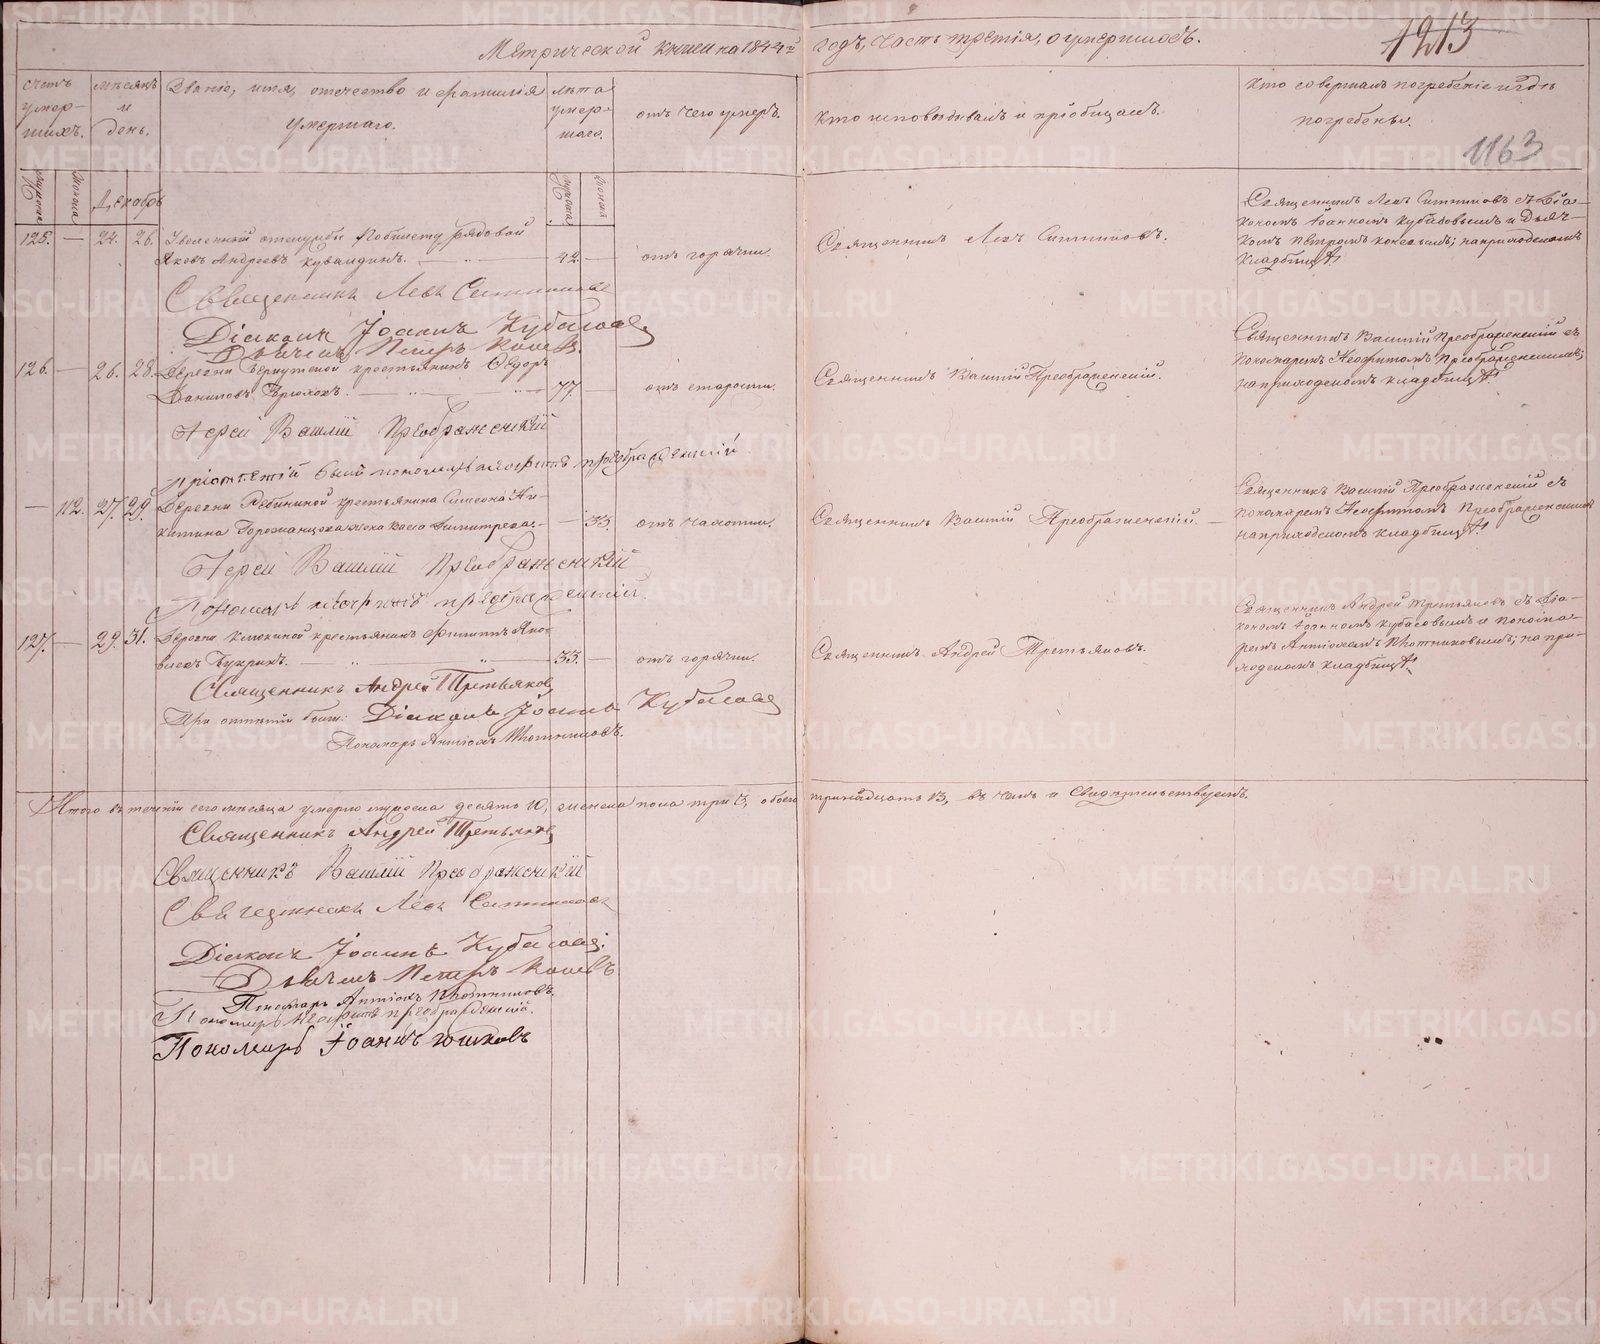 Метрической книги на 1844й годъ, часть третія, о умершихъ.
1213
1163
счетъ умер-шихъ.
мѣсяцъ и день.
Званіе, имя, отечество и фамилія умершаго.
лѣта умер-шаго.
отъ чего умеръ.
кто исповѣдывалъ и пріобщалъ.
кто совершалъ погребеніе и гдѣ погребены.
мужеска
женска
Декабрь
мужеска
женска
125. — 24. 26. Уволенный отслужбы побилету рядовой
Яковъ Андреевъ Кувалдинъ. — 42. —
отъ горячки.
Священникъ Левъ Ситниковъ.
Священникъ Левъ Ситниковъ съ Діа-
кономъ Іоанномъ Кубасовымъ и Дьяч-
комъ Петромъ; на приходскомъ
кладбищѣ
Священникъ Левъ Ситниковъ
Діаконъ Іоаннъ Кубасовъ
Дьячекъ Петръ
126. — 26. 28. Деревни крестьянинъ Ѳедоръ
Даниловъ — 77. —
отъ старости.
Священникъ Василій Преображенскій.
Священникъ Василій Преображенскій съ
пономаремъ Неофитомъ Преображенскимъ;
на приходскомъ кладбищѣ
Іерей Василій Преображенскій
былъ пономарь Неофитъ Преображенскій
— 112. 27. 29. Деревни крестьянина Симеона Ни-
китина жена Димитрева — 33.
отъ чахотки.
Священникъ Василій Преображенскій. —
Священникъ Василій Преображенскій съ
пономаремъ Неофитомъ Преображенскимъ
на приходскомъ кладбищѣ
Іерей Василій Преображенскій
Пономарь Неофитъ Преображенскій.
127. — 29. 31. Деревни крестьянинъ Филиппъ Яко-
влевъ Букринъ. — 33. —
отъ горячки.
Священникъ Андрей Третьяковъ.
Священникъ Андрей Третьяковъ съ Діа-
кономъ Іоанномъ Кубасовымъ и понома-
ремъ Антіохомъ Плотниковымъ; на при-
ходскомъ кладбищѣ
Священникъ Андрей Третьяковъ
При отпѣтіи были: Діаконъ Іоаннъ Кубасовъ
Пономарь Антіохъ Плотниковъ.
Итого въ теченіи сего мѣсяца умерло мужеска десять 10, женска пола три 3, обоего тринадцать 13, въ чемъ и Свидѣтельствуемъ.
Священникъ Андрей Третьяковъ
Священникъ Василій Преображенскій
Священникъ Левъ Ситниковъ
Діаконъ Іоаннъ Кубасовъ.
Дьячекъ Петръ
Пономарь Антіохъ Плотниковъ.
Пономарь Неофитъ Преображенскій.
Пономарь Іоаннъ Юшковъ
METRIKI.GASO-URAL.RU